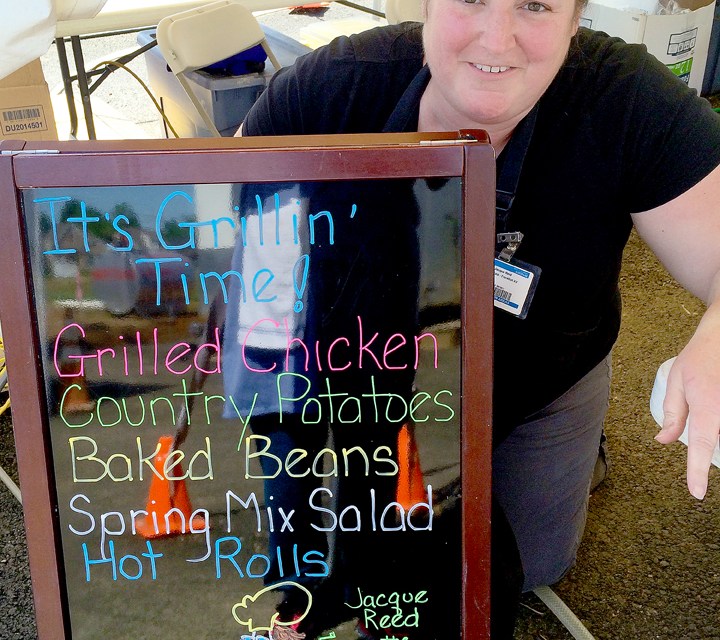 It's Grillin'
Time!
Grilled Chicken
Country Potatoes
Baked Beans
Spring Mix Salad
Hot Rolls
Jacque
Reed
the
DU2014501